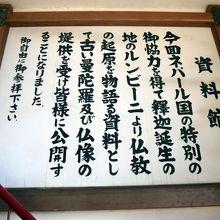 資料館
今回ネパール国の特別の
御協力を得て釈迦誕生の
地のルンビーニより仏教
の起原を物語る資料とし
て古い曼陀羅及び仏像の
提供を受け皆様に公開す
ることになりました。
御自由に御参拝下さい。